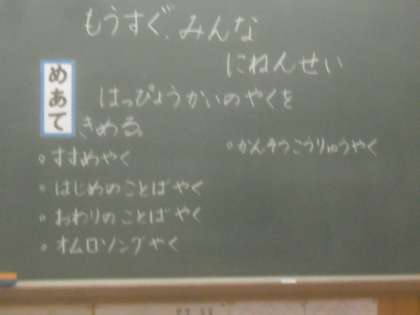 もうすぐ、みんな
にねんせい
めあて
はっぴょうかいのやくを
きめる。
。すすめやく
。はじめのことばやく
。おわりのことばやく
。オムロソングやく
。かんそうこうりゅうやく